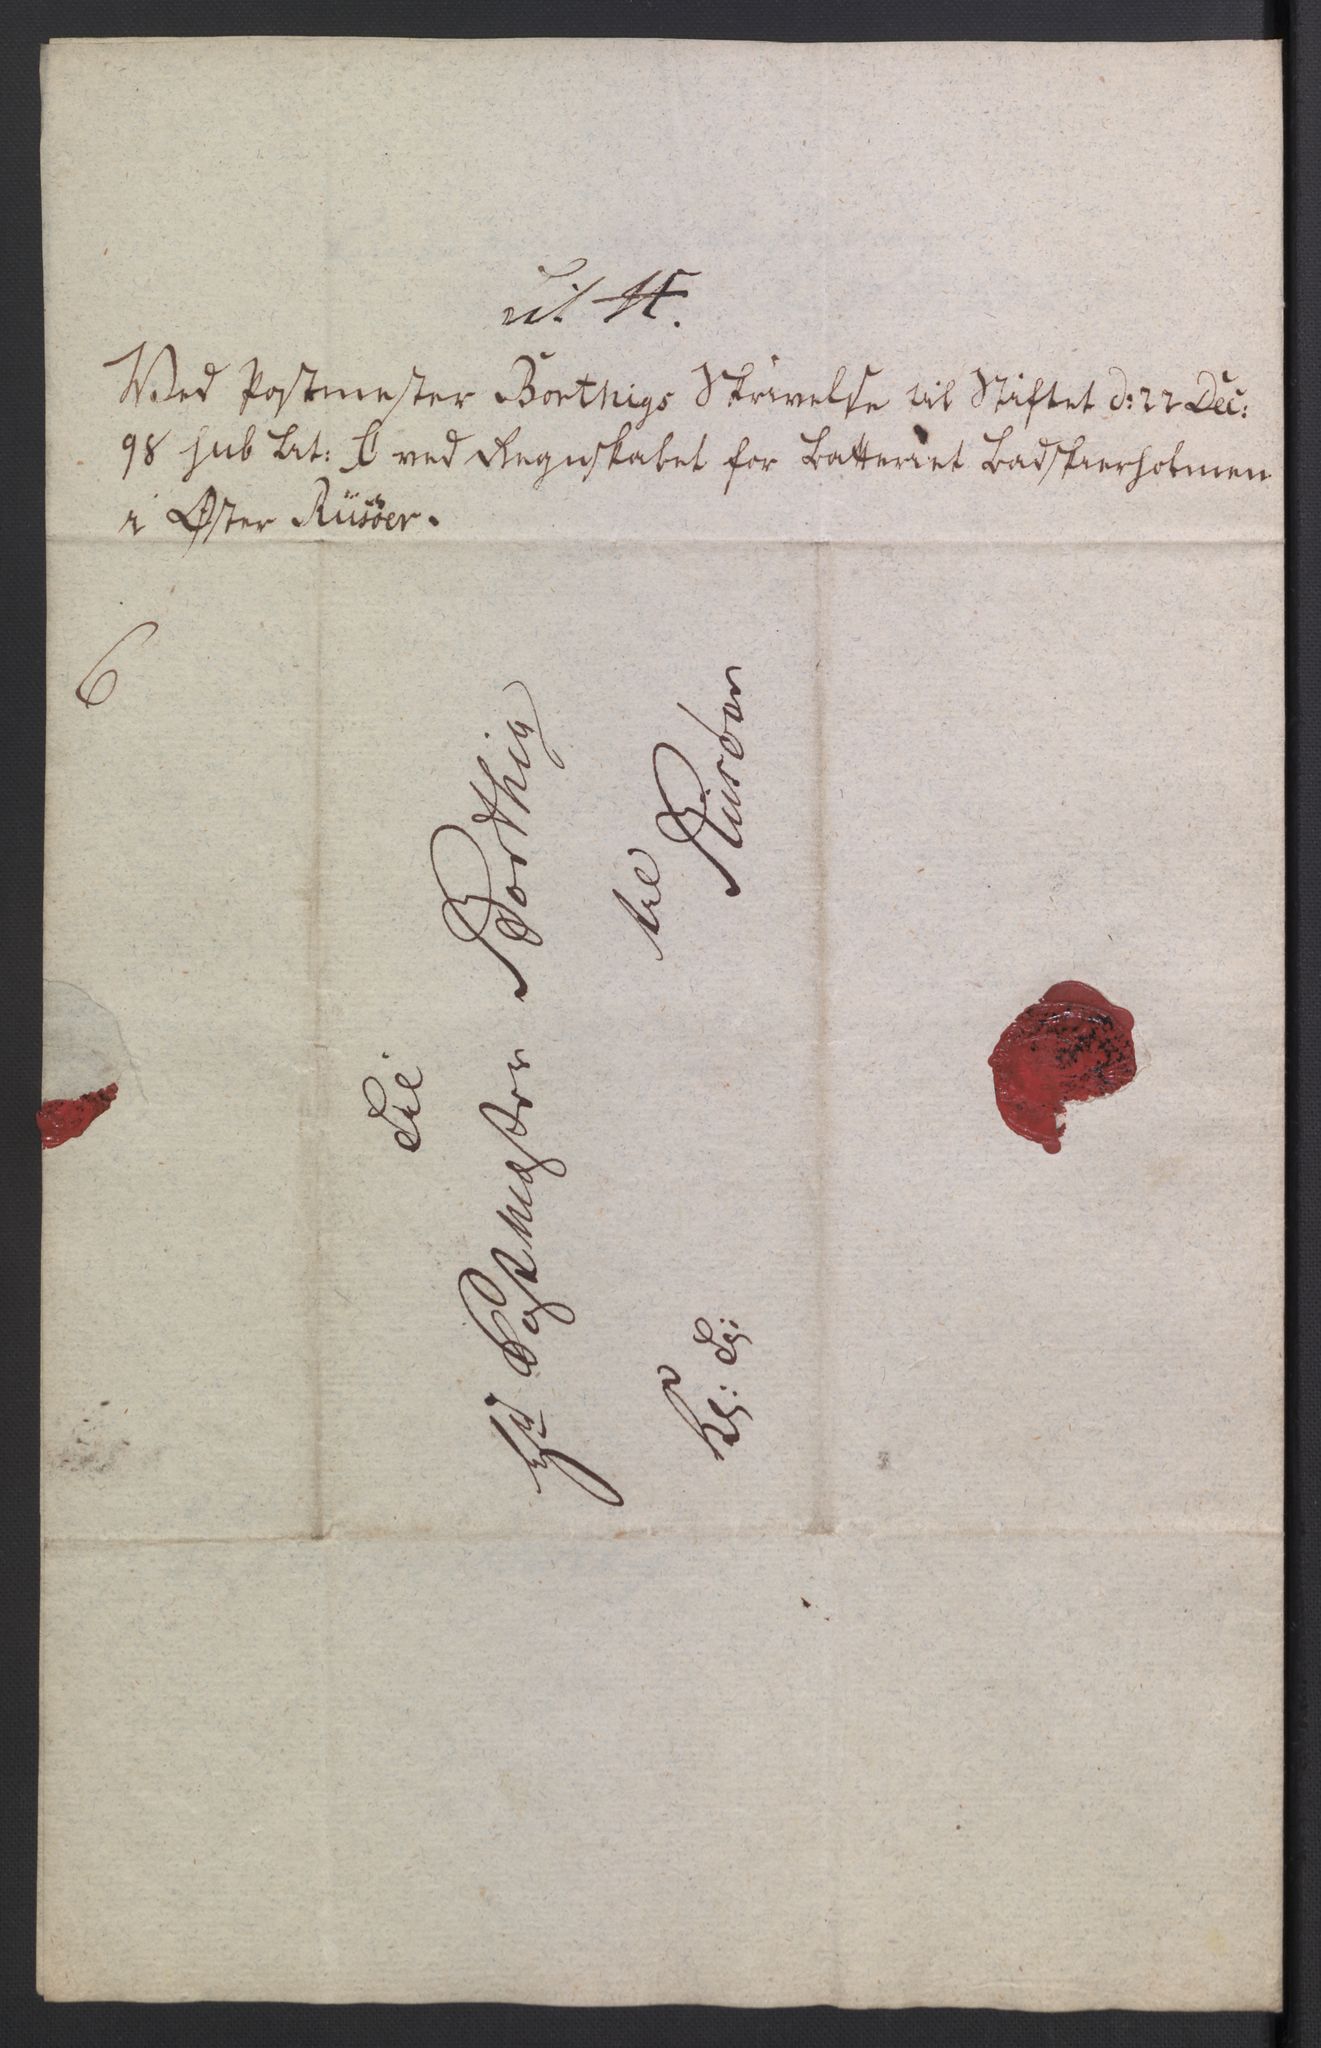 Til H.
Wed Postmester Boethigs Skrivelse til Stiftet d: 22 Dec:
98 sub Lit: C ved Regnskabet for Batteriet Ladskierholmen
i Øster Riisöer.
6
Til
Hr Postmester Boethig
til Riisöer
K: T: